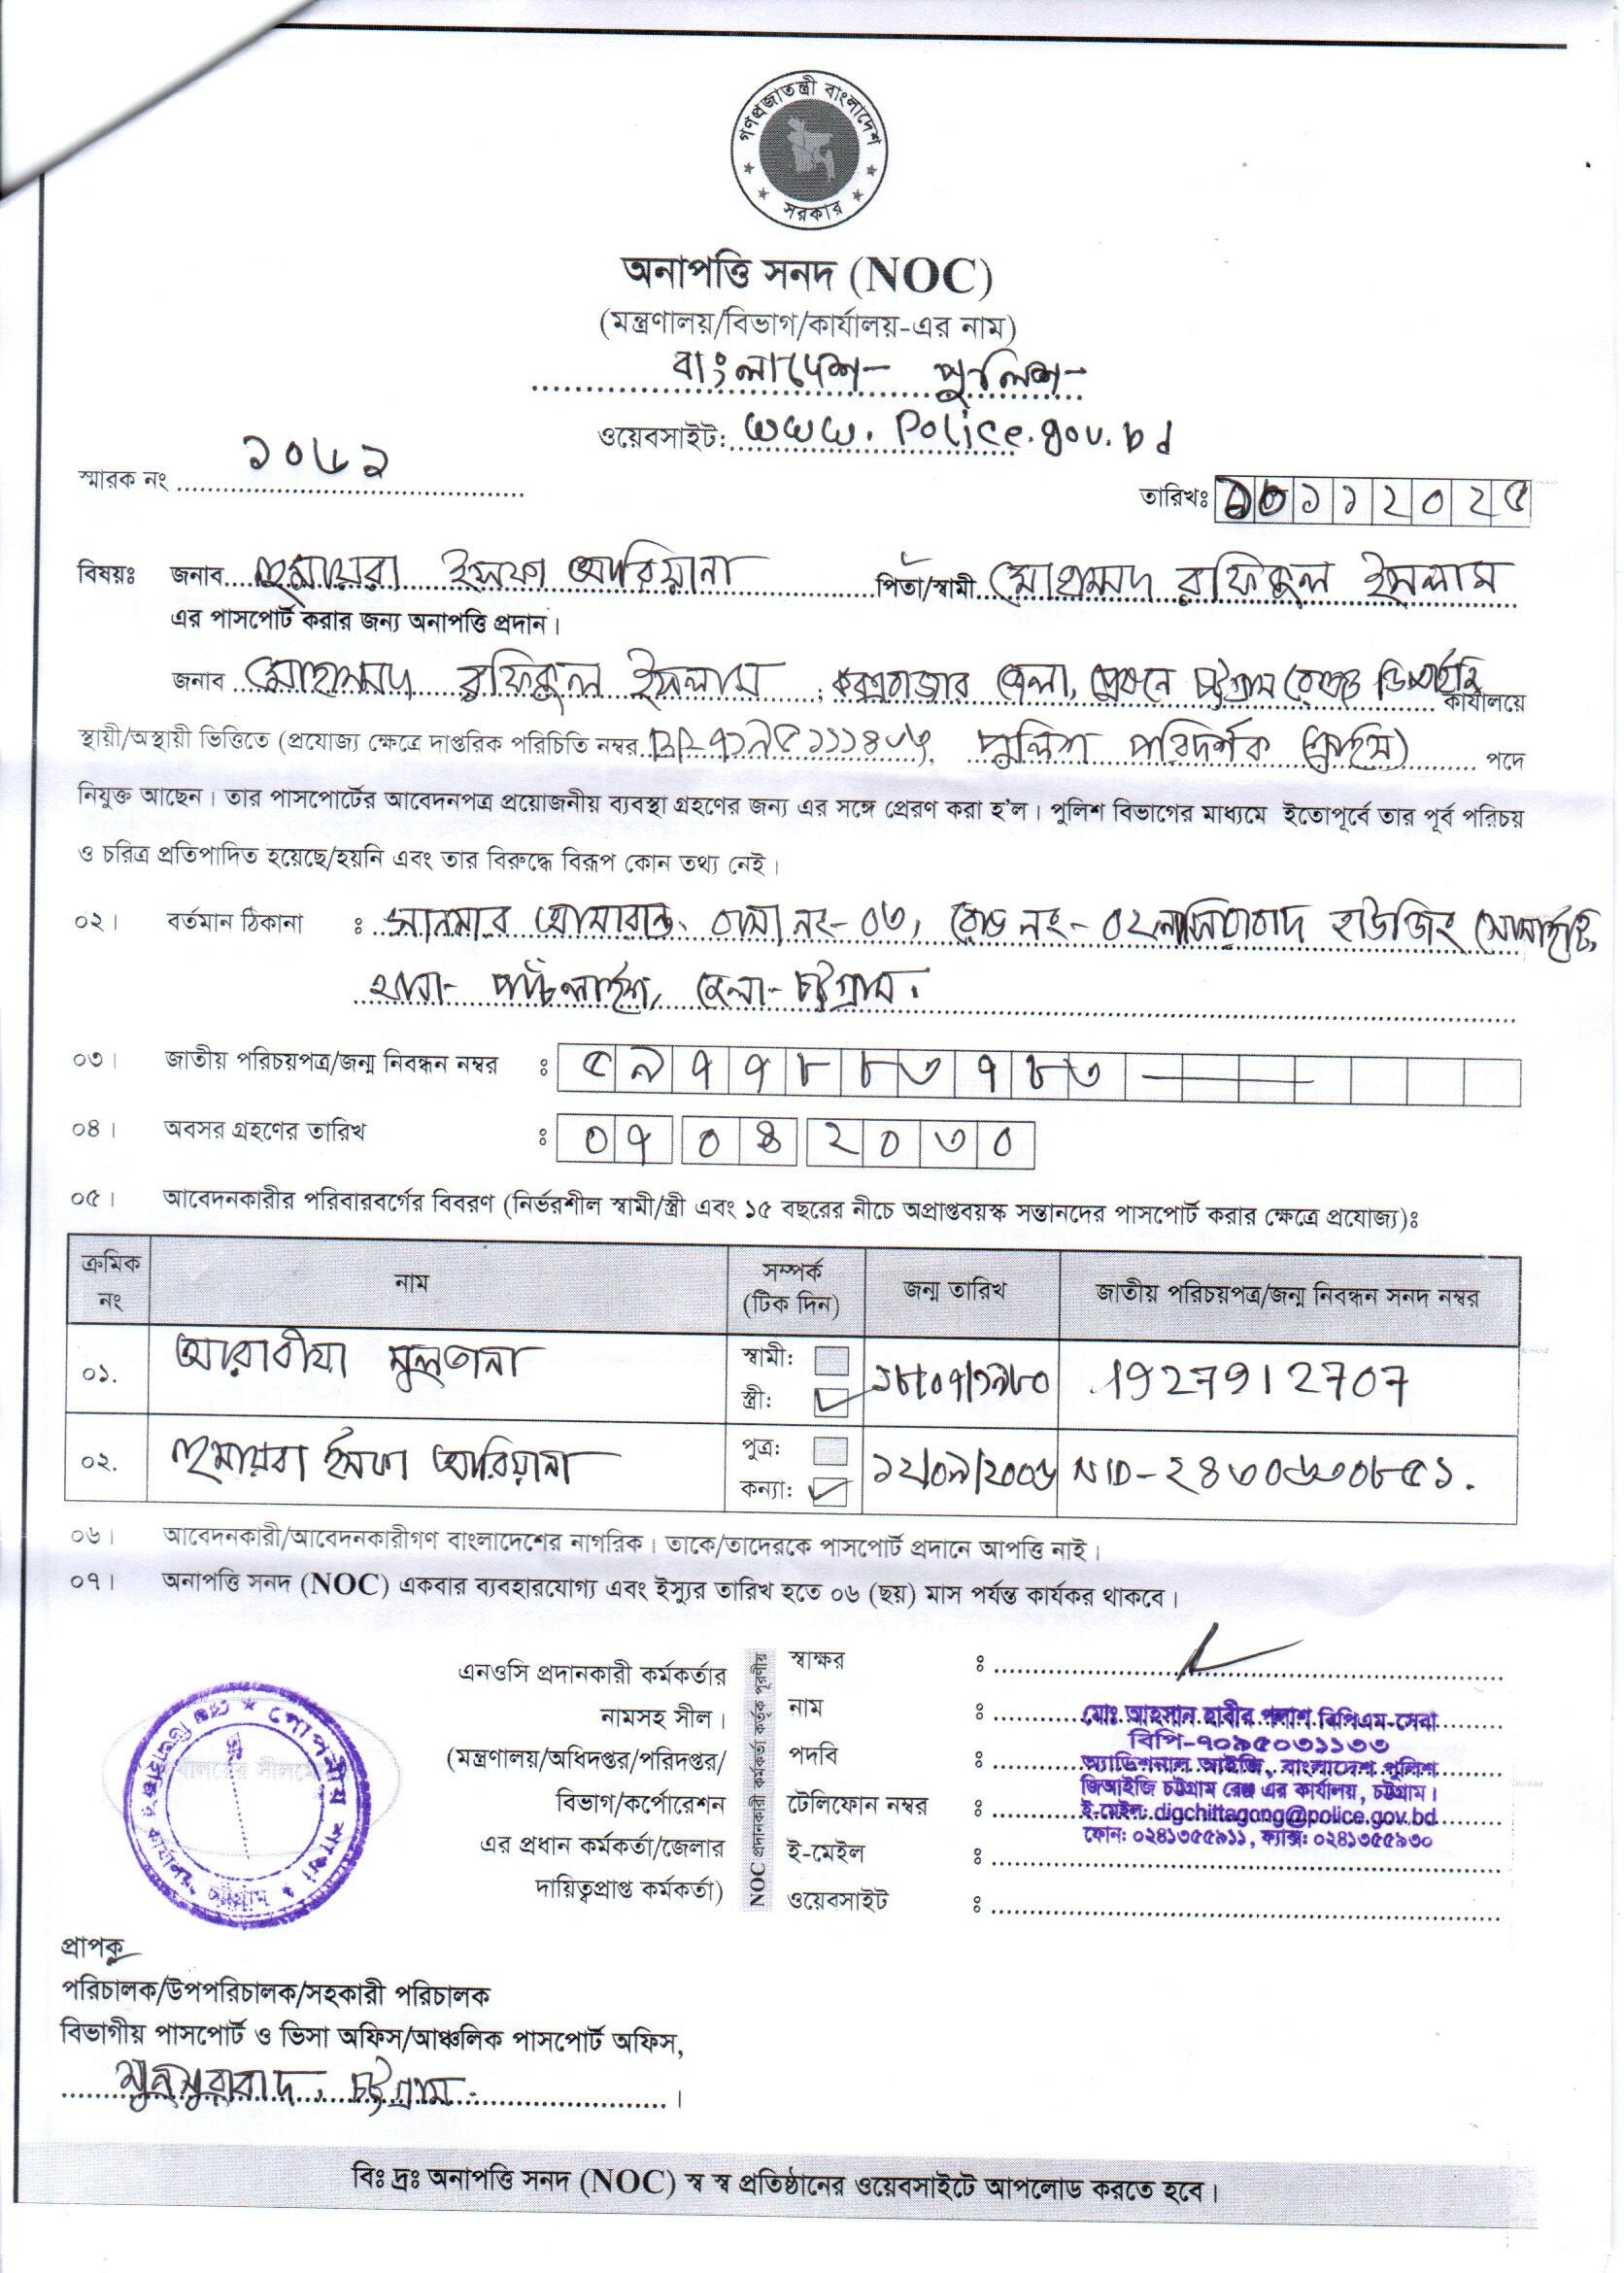 গণপ্রজাতন্ত্রী বাংলাদেশ
সরকার
অনাপত্তি সনদ (NOC)
(মন্ত্রণালয়/বিভাগ/কার্যালয়-এর নাম)
বাংলাদেশ পুলিশ
ওয়েবসাইট: www.Police.gov.bd
স্মারক নং ১০৬১
তারিখঃ ১১২০২৫
বিষয়ঃ জনাব হুমায়রা ইসফা আরিয়ানা পিতা/স্বামী মোহাম্মদ রফিকুল ইসলাম
এর পাসপোর্ট করার জন্য অনাপত্তি প্রদান।
জনাব মোহাম্মদ রফিকুল ইসলাম, কক্সবাজার জেলা, চট্টগ্রাম রেঞ্জ কার্যালয়ে
স্থায়ী/অস্থায়ী ভিত্তিতে (প্রযোজ্য ক্ষেত্রে দাপ্তরিক পরিচিতি নম্বর. পুলিশ পরিদর্শক পদে
নিযুক্ত আছেন। তার পাসপোর্টের আবেদনপত্র প্রয়োজনীয় ব্যবস্থা গ্রহণের জন্য এর সঙ্গে প্রেরণ করা হ'ল। পুলিশ বিভাগের মাধ্যমে ইতোপূর্বে তার পূর্ব পরিচয়
ও চরিত্র প্রতিপাদিত হয়েছে/হয়নি এবং তার বিরুদ্ধে বিরূপ কোন তথ্য নেই।
০২। বর্তমান ঠিকানা : সানমার বাসা নং-০৩, রোড নং-০২ নাসিরাবাদ হাউজিং সোসাইটি,
থানা- পাঁচলাইশ, জেলা-চট্টগ্রাম।
০৩। জাতীয় পরিচয়পত্র/জন্ম নিবন্ধন নম্বর : ৫৯৭৭৮৮৩৭৮৩
০৪। অবসর গ্রহণের তারিখ : ০৭ ০৪ ২০৩০
০৫। আবেদনকারীর পরিবারবর্গের বিবরণ (নির্ভরশীল স্বামী/স্ত্রী এবং ১৫ বছরের নীচে অপ্রাপ্তবয়স্ক সন্তানদের পাসপোর্ট করার ক্ষেত্রে প্রযোজ্য)ঃ
ক্রমিক নং নাম সম্পর্ক (টিক দিন) জন্ম তারিখ জাতীয় পরিচয়পত্র/জন্ম নিবন্ধন সনদ নম্বর
০১. আরাবীয়া সুলতানা স্বামী: স্ত্রী: ১৮/০৭/১৯৮০ 1927912707
০২. হুমায়রা ইসফা আরিয়ানা পুত্র: কন্যা: ১২/০৯/২০০৬ NID-২৪৬০৬৬০৮৫১.
০৬। আবেদনকারী/আবেদনকারীগণ বাংলাদেশের নাগরিক। তাকে/তাদেরকে পাসপোর্ট প্রদানে আপত্তি নাই।
০৭। অনাপত্তি সনদ (NOC) একবার ব্যবহারযোগ্য এবং ইস্যুর তারিখ হতে ০৬ (ছয়) মাস পর্যন্ত কার্যকর থাকবে।
এনওসি প্রদানকারী কর্মকর্তার
নামসহ সীল।
(মন্ত্রণালয়/অধিদপ্তর/পরিদপ্তর/
বিভাগ/কর্পোরেশন
এর প্রধান কর্মকর্তা/জেলার
দায়িত্বপ্রাপ্ত কর্মকর্তা)
NOC প্রদানকারী কর্মকর্তা কর্তৃক পূরণীয়
স্বাক্ষর :
নাম :
পদবি :
টেলিফোন নম্বর :
ই-মেইল :
ওয়েবসাইট :
মোঃ আহসান হাবীব পলাশ বিপিএম-সেবা
বিপি-৭০৯৫০৩১১৩৩
অ্যাডিশনাল আইজি, বাংলাদেশ পুলিশ
ডিআইজি চট্টগ্রাম রেঞ্জ এর কার্যালয়, চট্টগ্রাম।
ই-মেইল: digchittagong@police.gov.bd
ফোন: ০২৪১৩৫৫৯১১, ফ্যাক্স: ০২৪১৩৫৫৯৩০
গোপনীয় শাখা
প্রাপক
পরিচালক/উপপরিচালক/সহকারী পরিচালক
বিভাগীয় পাসপোর্ট ও ভিসা অফিস/আঞ্চলিক পাসপোর্ট অফিস,
মুনসুরাবাদ, চট্টগ্রাম।
বিঃ দ্রঃ অনাপত্তি সনদ (NOC) স্ব স্ব প্রতিষ্ঠানের ওয়েবসাইটে আপলোড করতে হবে।